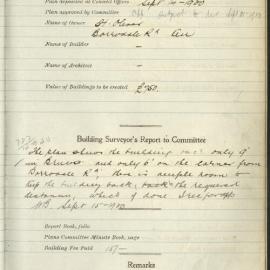 Plan deposited at Council Offices Sept 4-1920
Plan approved by Committee Off subject to Sept 21-1920
Name of Owner St. Oliver
Borrodale Rd
Name of Builder —
Name of Architect —
Value of Buildings to be erected £750
Building Surveyor's Report to Committee
The plan shows the building only 9'
and only 6' on the corner from
Borrodale Rd there is ample room to
keep the building back, back the required
distance, which if done I rec. for app.
Sept 15-1920
Report Book, folio
Plans Committee Minute Book, page
Building Fee Paid 15/-
Remarks